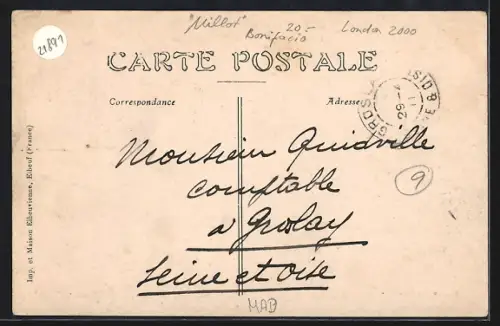 21891
"Millot"
Bonifacio
20.-
London 2000
CARTE POSTALE
Correspondance
Adresse
Monsieur Quidville
comptable
a Groslay
Seine et Oise
9
MAD
Imp. et Maison Elbeuvienne, Elbeuf (France)